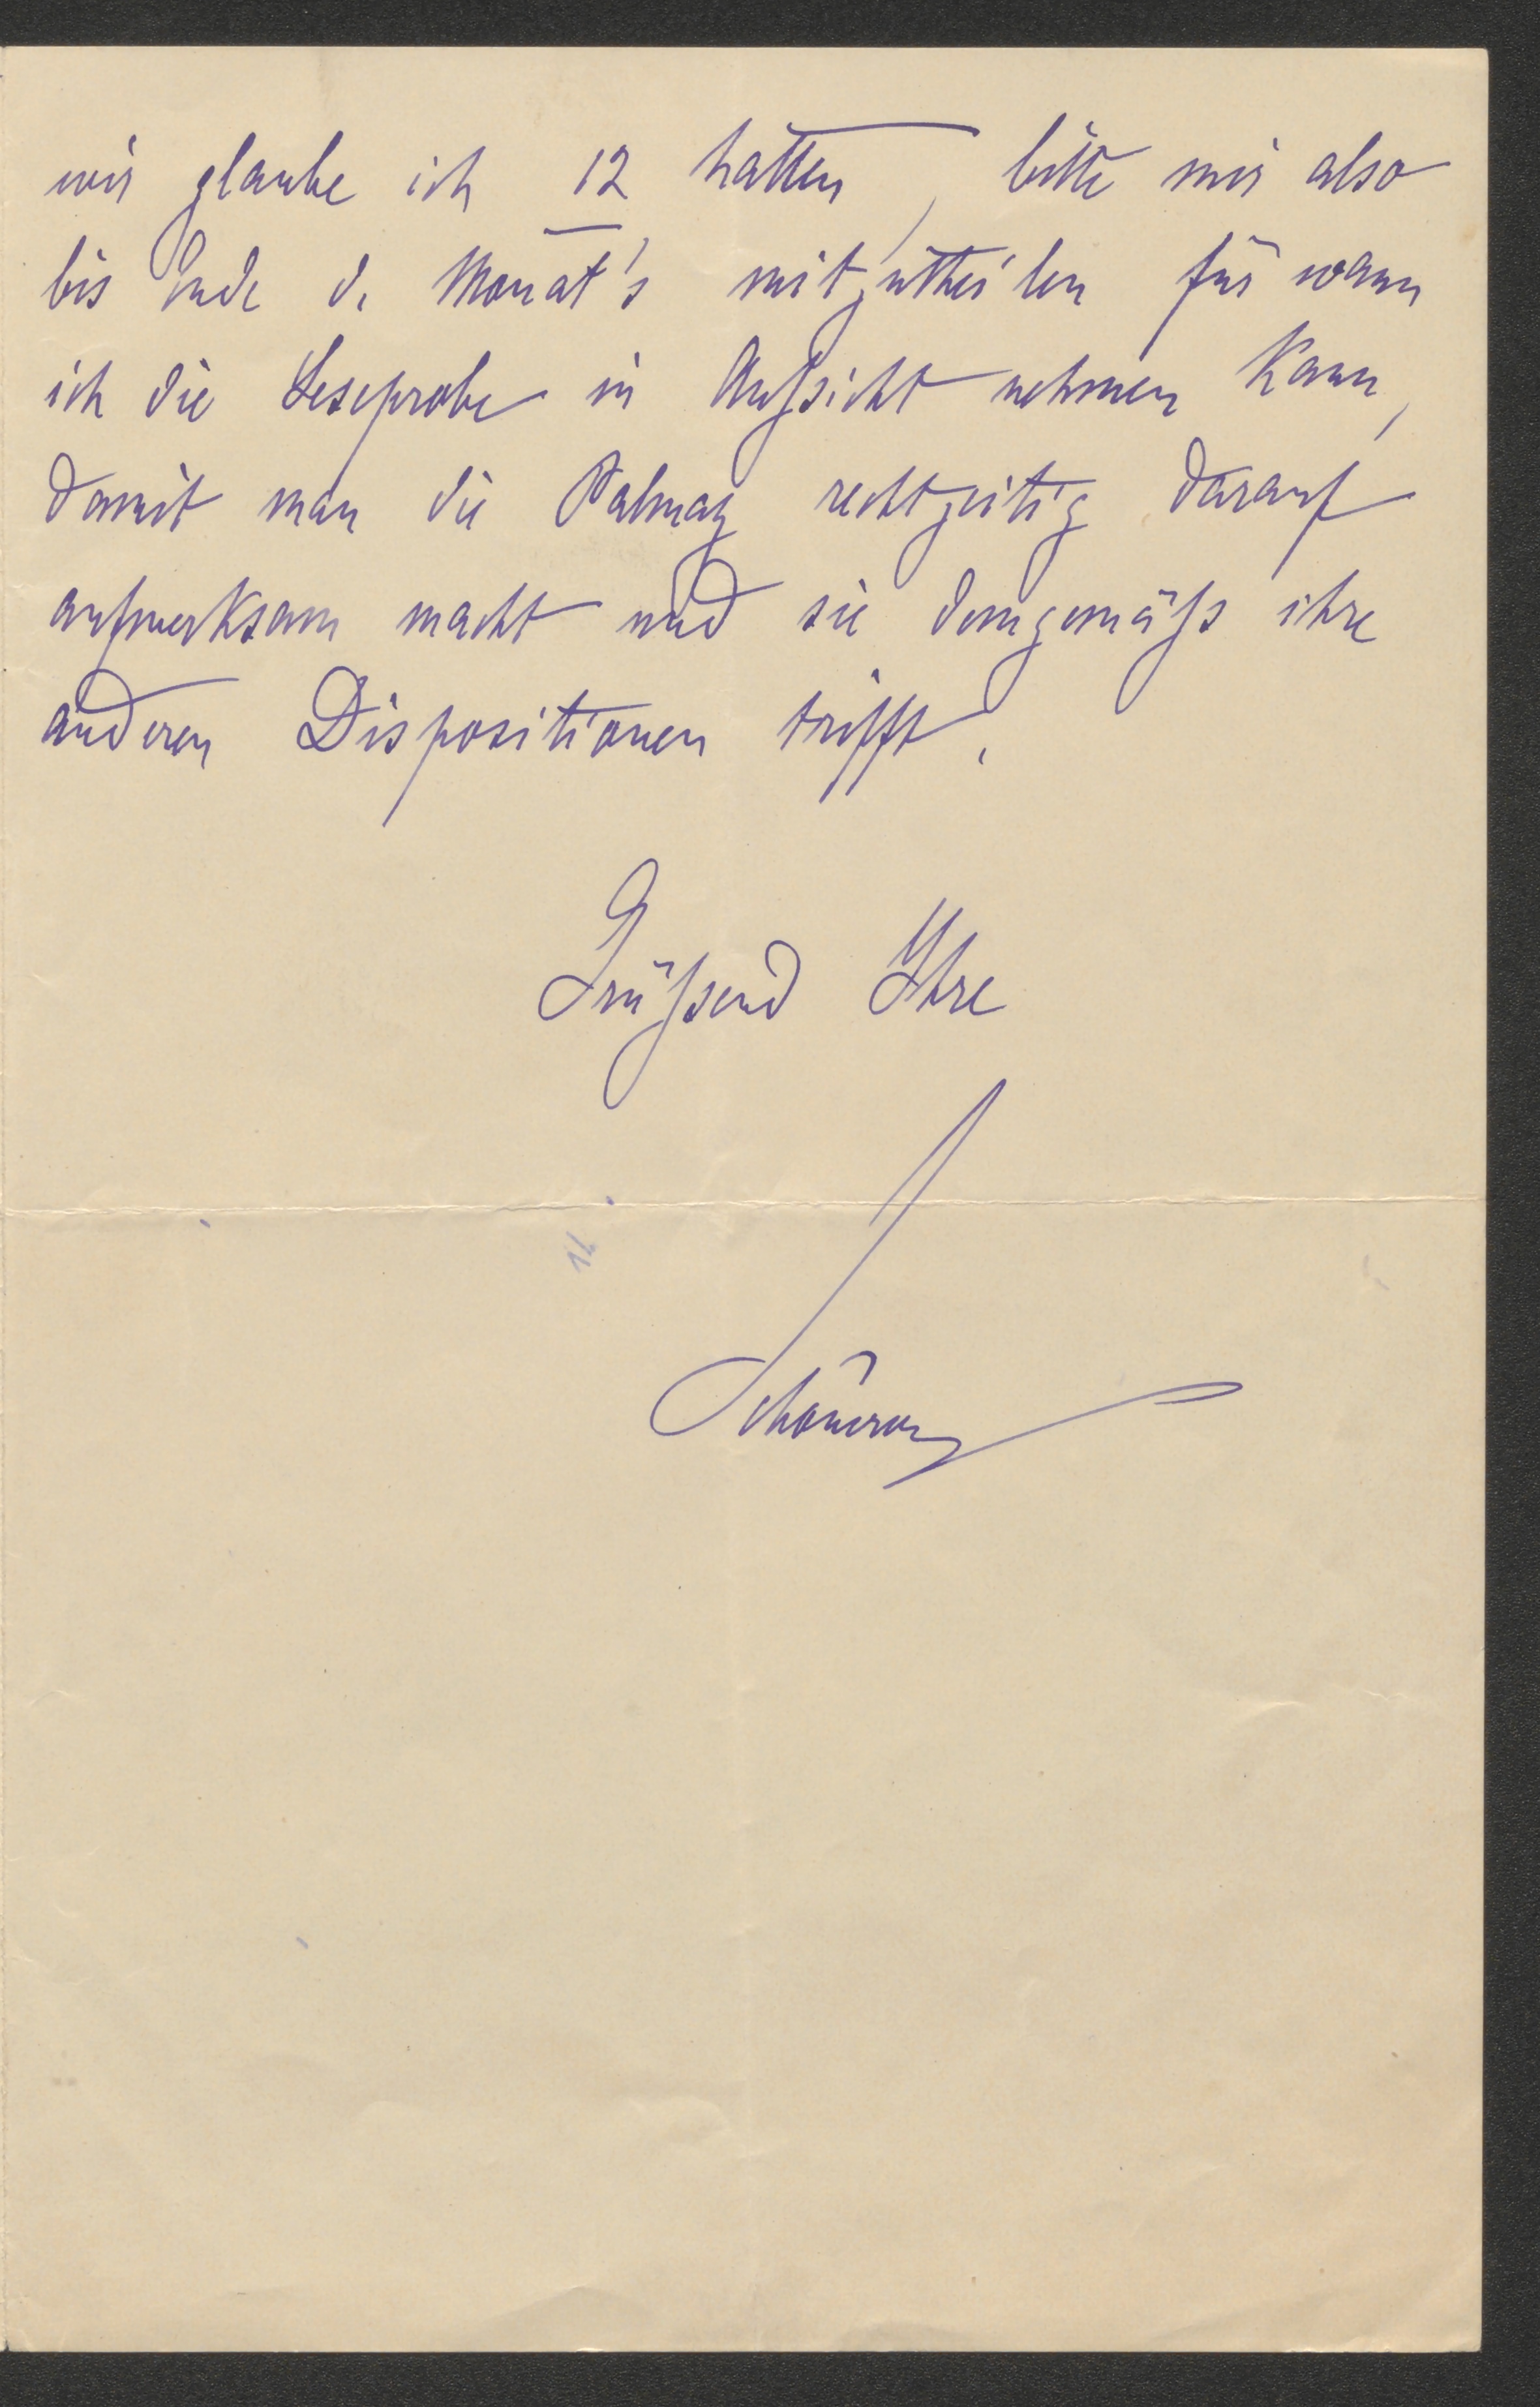 wir glaube ich 12 hatten, bitte mir also
bis Ende d. Monat's mitzutheilen für wann
ich die Leseprobe in Aussicht nehmen kann,
damit man die Palmay rechtzeitig darauf
aufmerksam macht und sie demgemäß ihre
anderen Dispositionen trifft.
Grüßend Ihre
Schönerer